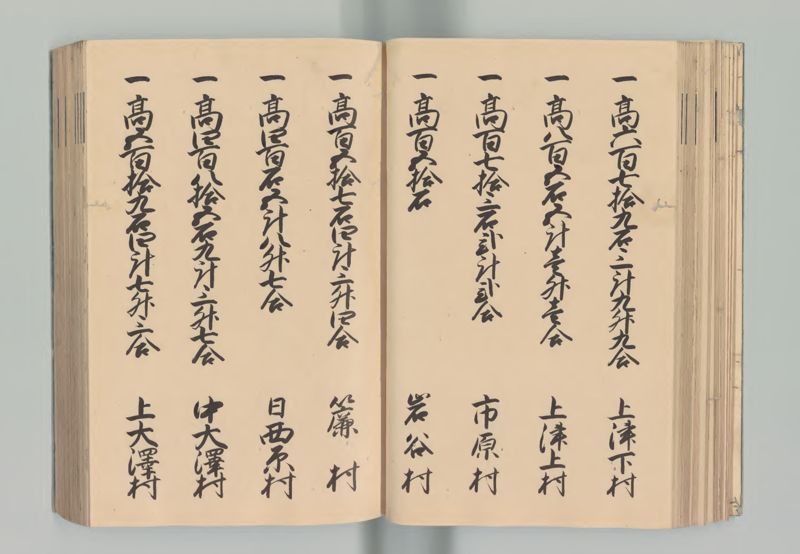 一 高六百七拾九石三斗九升九合 上津下村
一 高八百五石五斗壱升壱合 上津上村
一 高百七拾三石弐斗弐合 市原村
一 高百五拾石 岩谷村
一 高百五拾七石四斗三升四合 簾村
一 高四百石五斗八升七合 日西原村
一 高四百八拾五石九斗三升七合 中大澤村
一 高五百拾九石四斗七升三合 上大澤村